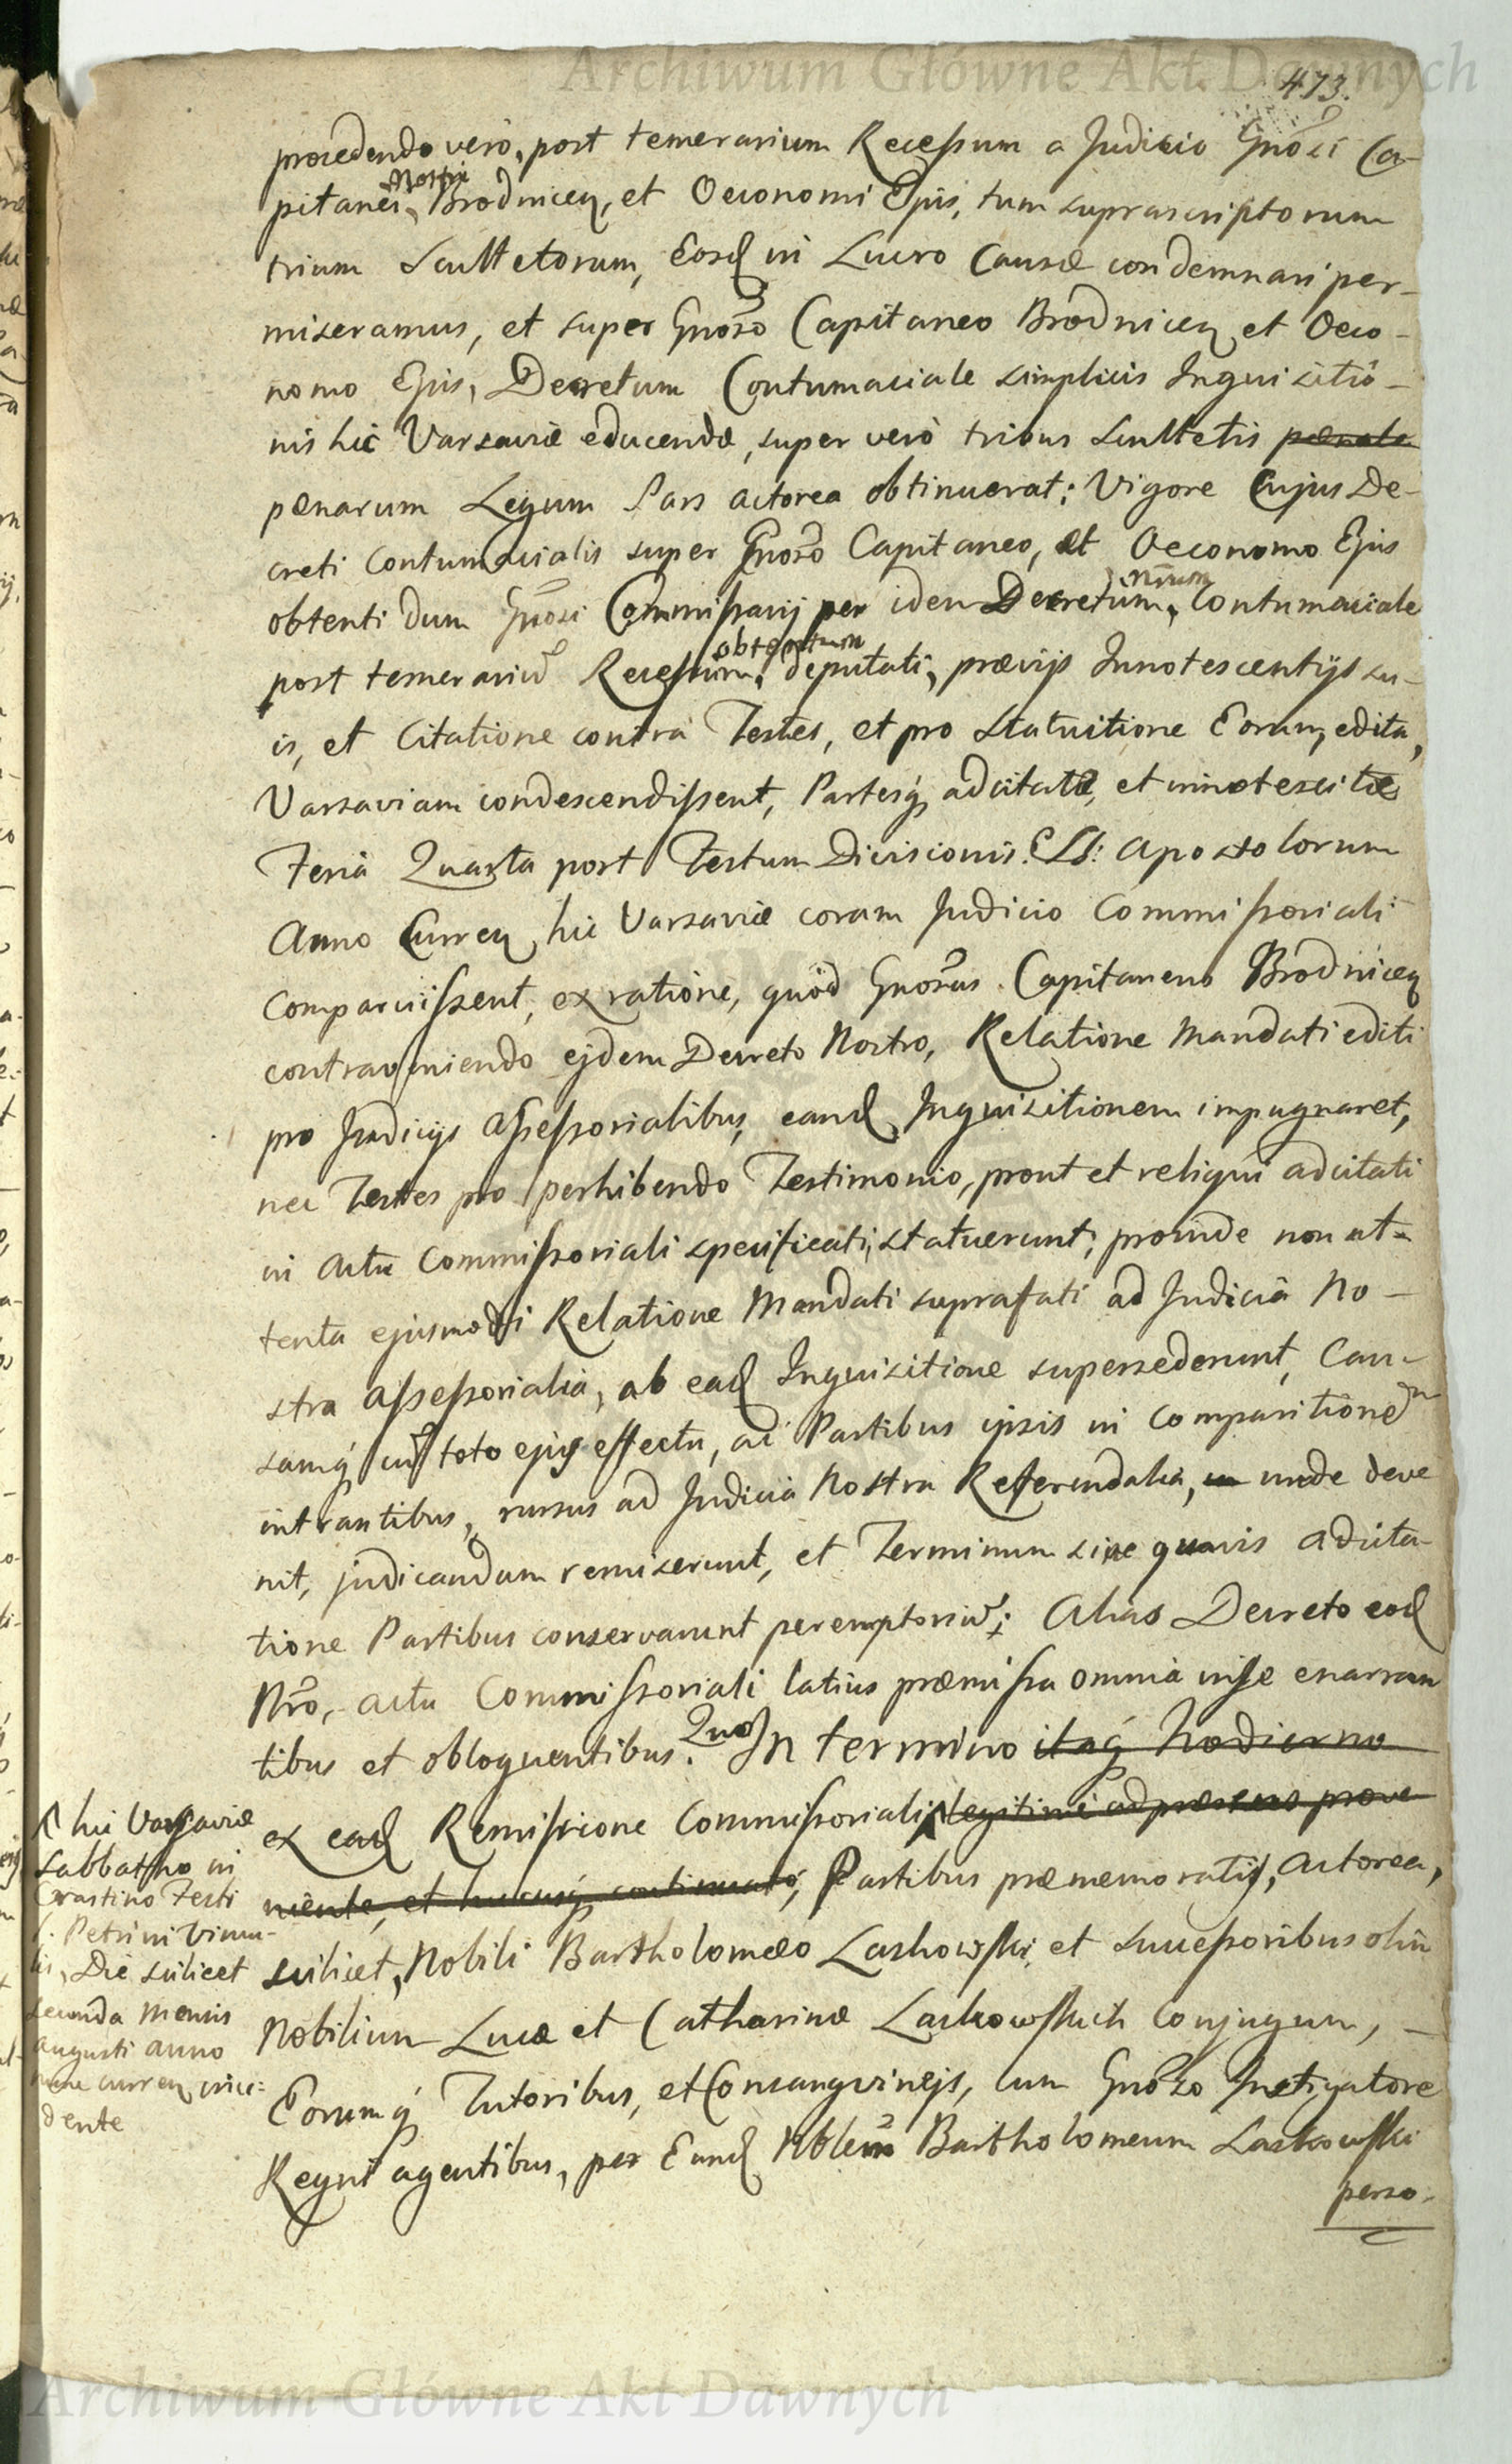 Archiwum Główne Akt Dawnych
473.
procedendo verò, post temerarium Recessum a Judicio Gnosi Ca-
pitanei Nostri Brodnicen, et Oeconomi Ejus, tum suprascriptorum
trium Scultetorum, Eosd in Lucro Causæ condemnari per-
miseramus, et super Gnoso Capitaneo Brodnicen et Oeco-
nomo Ejus, Decretum Contumaciale simplicis Inquisitio-
nis hic Varsaviæ educendæ, super verò tribus Scultetis pænale
pænarum Legum Pars actorea obtinuerat; Vigore Cujus De-
creti Contumacialis super Gnoso Capitaneo, et Oeconomo Ejus
obtenti dum Gnosi Commissarij per idem Decretum nrum Contumaciale
post temerariu Recessum obtentum deputati, prævijs Innotescentijs su-
is, et Citatione contra Testes, et pro Statuitione Eorum, edita,
Varsaviam condescendissent, Partesq adcitatæ, et innotescitæ
Feria Quarta post Festum Divisionis SS: Apostolorum
Anno Curren hic Varsaviæ coram Judicio Commissoriali
Comparuissent, ex ratione, quòd Gnosus Capitaneus Brodnicen
contraveniendo ejdem Decreto Nostro, Relatione Mandati editi
pro Judicijs Assessorialibus, eand Inquisitionem impugnaret,
nec Testes pro perhibendo Testimonio, prout et reliqui adcitati
in Actu Commissoriali specificati, statuerunt, proinde non at-
tenta ejusmodi Relatione Mandati suprafati ad Judicia No-
stra Assessorialia, ab ead Inquisitione supersederunt, Cau-
samq cu toto ejus effectu, ac Partibus ipsis in Comparitionem
intrantibus, rursus ad Judicia Nostra Referendalia, unde deve
nit, judicandam remiserunt, et Terminum sine quavis adcita-
tione Partibus conservarunt peremptoriu; Alias Decreto eod
Nro, actu Commissoriali latius præmissa omnia in se enarran
tibus et obloquentibus. Quo In termino itaq hodierno
ex ead Remissione Commissoriali legitime ad præsens prove
niente, et hucusq continuato, Partibus præmemoratis, Actorea,
scilicet, Nobili Bartholomeo Laskowski, et Successoribus olim
Nobilium Lucæ et Catharinæ Laskowskich Conjugum,
Eorumq Tutoribus, et Consangvineis, cum Gnoso Instigatore
Regni agentibus, per Eund Nblem Bartholomeum Laskowski
perso-
hic Varsaviæ
Sabbatho in
Crastino Festi
S. Petri in Vincu-
lis, Die scilicet
secunda Mensis
Augusti anno
nunc curren inci-
dente
Archiwum Główne Akt Dawnych